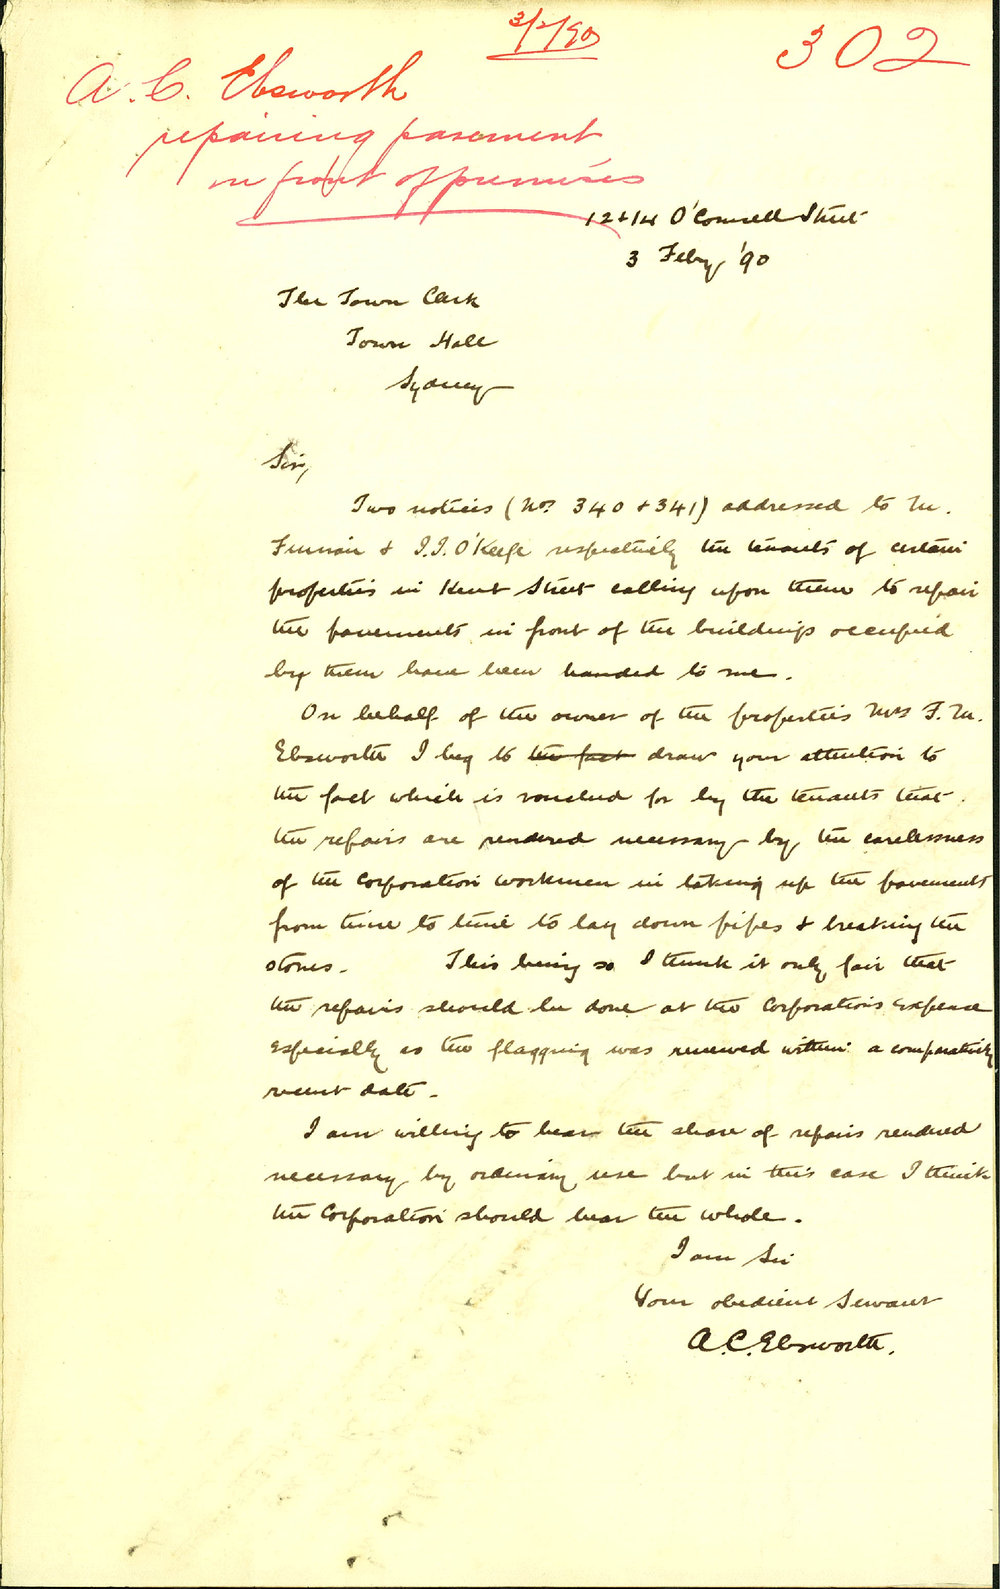 3/2/90
302
A. C. Ebsworth
repairing pavement
in front of premises
12 & 14 O'Connell Street
3 Feby '90
The Town Clerk
Town Hall
Sydney
Sir,
Two notices (Nos. 340 & 341) addressed to M.
& J.J. O'Keefe respectively the tenants of certain
properties in Kent Street calling upon them to repair
the pavements in front of the buildings occupied
by them have been handed to me.
On behalf of the owner of the properties Mrs F. M.
Ebsworth I beg to the fact draw your attention to
the fact which is vouched for by the tenants that
the repairs are rendered necessary by the carelessness
of the Corporation workmen in taking up the pavement
from time to time to lay down pipes & breaking the
stones. This being so I think it only fair that
the repairs should be done at the Corporation's expense
especially as the flagging was renewed within a comparatively
recent date.
I am willing to bear the share of repairs rendered
necessary by ordinary use but in this case I think
the Corporation should bear the whole.
I am Sir
Your obedient Servant
A.C. Ebsworth.